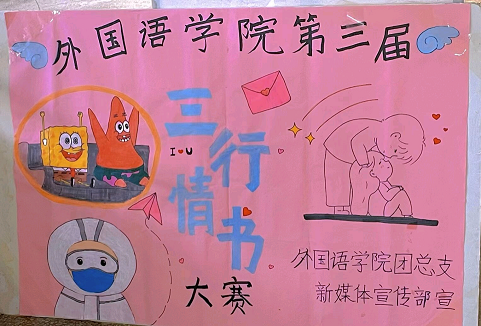 外国语学院第三届
三行
情书
I❤U
大赛
外国语学院团总支
新媒体宣传部宣